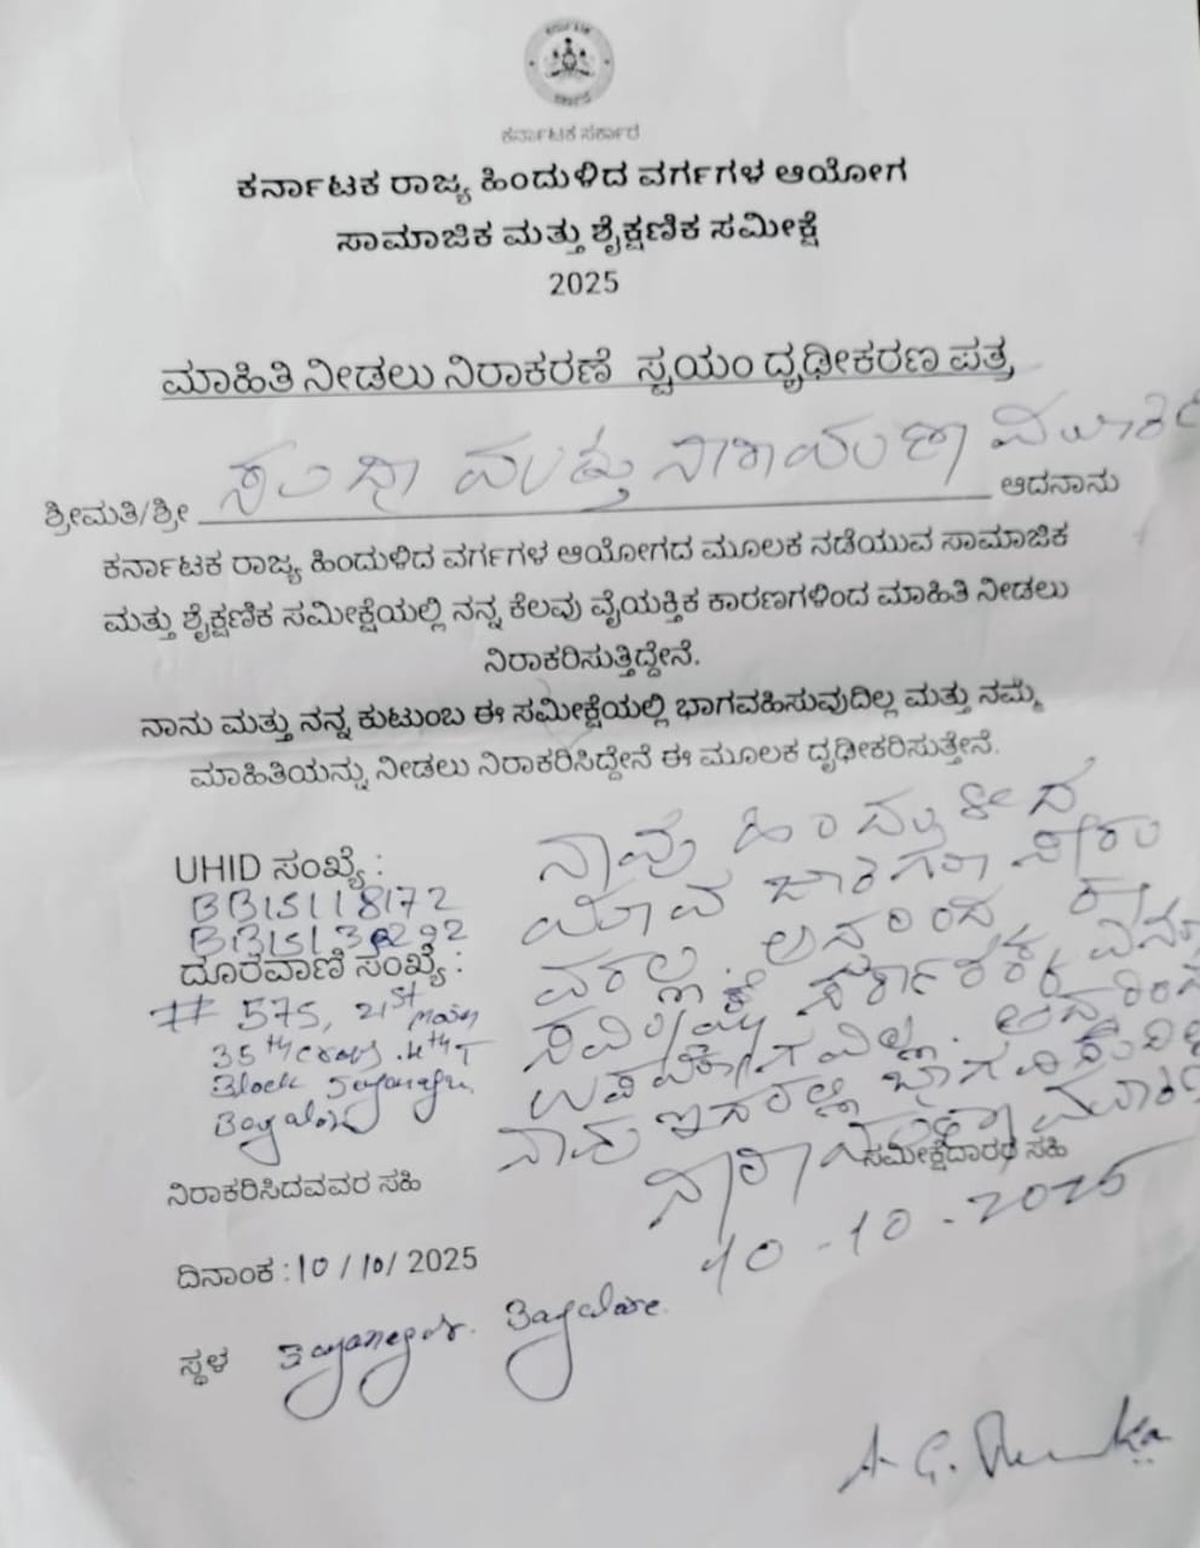 ಕರ್ನಾಟಕ ಸರ್ಕಾರ
ಕರ್ನಾಟಕ ರಾಜ್ಯ ಹಿಂದುಳಿದ ವರ್ಗಗಳ ಆಯೋಗ
ಸಾಮಾಜಿಕ ಮತ್ತು ಶೈಕ್ಷಣಿಕ ಸಮೀಕ್ಷೆ
2025
ಮಾಹಿತಿ ನೀಡಲು ನಿರಾಕರಣೆ ಸ್ವಯಂ ದೃಢೀಕರಣ ಪತ್ರ
ಶ್ರೀಮತಿ/ಶ್ರೀ ಸುಧಾ ಮೂರ್ತಿ ನಾರಾಯಣ ಮೂರ್ತಿ ಆದನಾನು
ಕರ್ನಾಟಕ ರಾಜ್ಯ ಹಿಂದುಳಿದ ವರ್ಗಗಳ ಆಯೋಗದ ಮೂಲಕ ನಡೆಯುವ ಸಾಮಾಜಿಕ
ಮತ್ತು ಶೈಕ್ಷಣಿಕ ಸಮೀಕ್ಷೆಯಲ್ಲಿ ನನ್ನ ಕೆಲವು ವೈಯಕ್ತಿಕ ಕಾರಣಗಳಿಂದ ಮಾಹಿತಿ ನೀಡಲು
ನಿರಾಕರಿಸುತ್ತಿದ್ದೇನೆ.
ನಾನು ಮತ್ತು ನನ್ನ ಕುಟುಂಬ ಈ ಸಮೀಕ್ಷೆಯಲ್ಲಿ ಭಾಗವಹಿಸುವುದಿಲ್ಲ ಮತ್ತು ನಮ್ಮ
ಮಾಹಿತಿಯನ್ನು ನೀಡಲು ನಿರಾಕರಿಸಿದ್ದೇನೆ ಈ ಮೂಲಕ ದೃಢೀಕರಿಸುತ್ತೇನೆ.
UHID ಸಂಖ್ಯೆ :
BB15118172
ದೂರವಾಣಿ ಸಂಖ್ಯೆ :
# 575, 21st main
35th cross, 4th T
Block Jayanagar
Bangalore
ನಾವು ಹಿಂದುಳಿದ
ಯಾವ ಜಾತಿಗೂ ಸೇರು
ವದಿಲ್ಲ. ಅದರಿಂದ
ಸರ್ಕಾರಕ್ಕೆ
ಉಪಯೋಗವಿಲ್ಲ. ಅದ್ದರಿಂದ
ನಾವು ಇದರಲ್ಲಿ
ನಿರಾಕರಿಸಿದವವರ ಸಹಿ
ಸಮೀಕ್ಷೆದಾರರ ಸಹಿ
10-10-2025
ದಿನಾಂಕ : 10 / 10 / 2025
ಸ್ಥಳ Jayanagar. Bangalore.